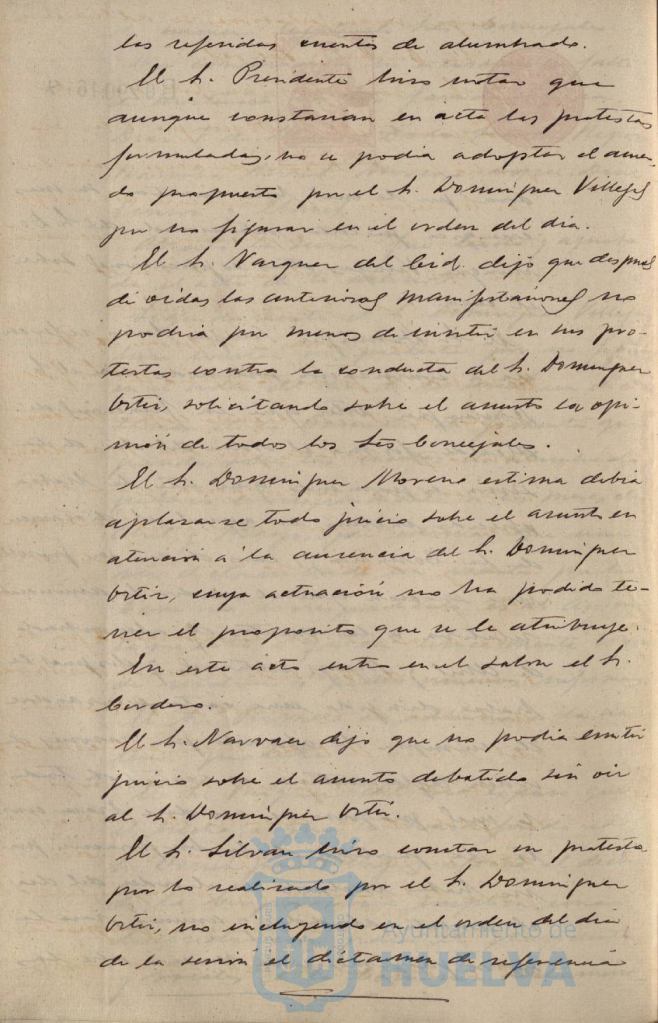 las referidas cuentas de alumbrado.
El Sr. Presidente hizo notar que
aunque constarian en acta las protestas
formuladas, no se podia adoptar el acuer-
do propuesto por el Sr. Dominguez Villegas
por no figurar en el orden del dia.
El Sr. Vazquez del Cid dijo que despues
de oidas las anteriores manifestaciones no
podria por menos de insistir en sus pro-
testas contra la conducta del Sr. Dominguez
Ortiz, solicitando sobre el asunto la opi-
nión de todos los Sres Concejales.
El Sr. Dominguez Moreno estima debia
aplazarse todo juicio sobre el asunto en
atención á la ausencia del Sr. Dominguez
Ortiz, cuya actuación no ha podido te-
ner el proposito que se le atribuye.
En este acto entra en el salon el Sr.
Cordero.
El Sr. Narvaez dijo que no podia emitir
juicio sobre el asunto debatido sin oir
al Sr. Dominguez Ortiz.
El Sr. Silvan hizo constar su protesta
por lo realizado por el Sr. Dominguez
Ortiz, no incluyendo en el orden del dia
de la sesión el dictamen de referencia
Ayuntamiento de
HUELVA